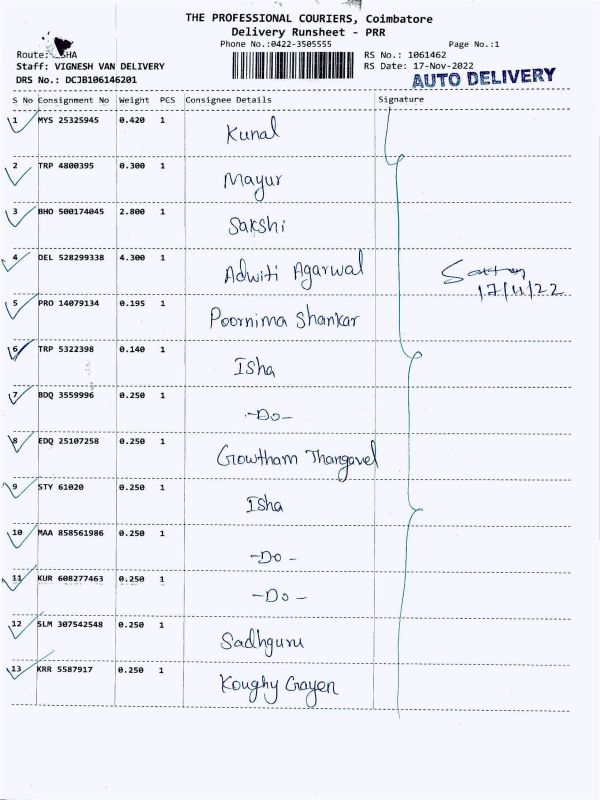 THE PROFESSIONAL COURIERS, Coimbatore
Delivery Runsheet - PRR
Phone No.:0422-3505555 Page No.:1
Route: SHA RS No.: 1061462
Staff: VIGNESH VAN DELIVERY RS Date: 17-Nov-2022
DRS No.: DCJB106146201 AUTO DELIVERY
S No Consignment No Weight PCS Consignee Details Signature
1 MYS 25325945 0.420 1 Kunal
2 TRP 4800395 0.300 1 Mayur
3 BHO 500174045 2.800 1 Sakshi
4 DEL 528299338 4.300 1 Adwiti Agarwal
17/11/22
5 PRO 14079134 0.195 1 Poornima Shankar
6 TRP 5322398 0.140 1 Isha
7 BDQ 3559996 0.250 1 -Do-
8 EDQ 25107258 0.250 1 Gowtham Thangavel
9 STY 61020 0.250 1 Isha
10 MAA 858561986 0.250 1 -Do-
11 KUR 608277463 0.250 1 -Do-
12 SLM 307542548 0.250 1 Sadhguru
13 KRR 5587917 0.250 1 Koughy Gayen